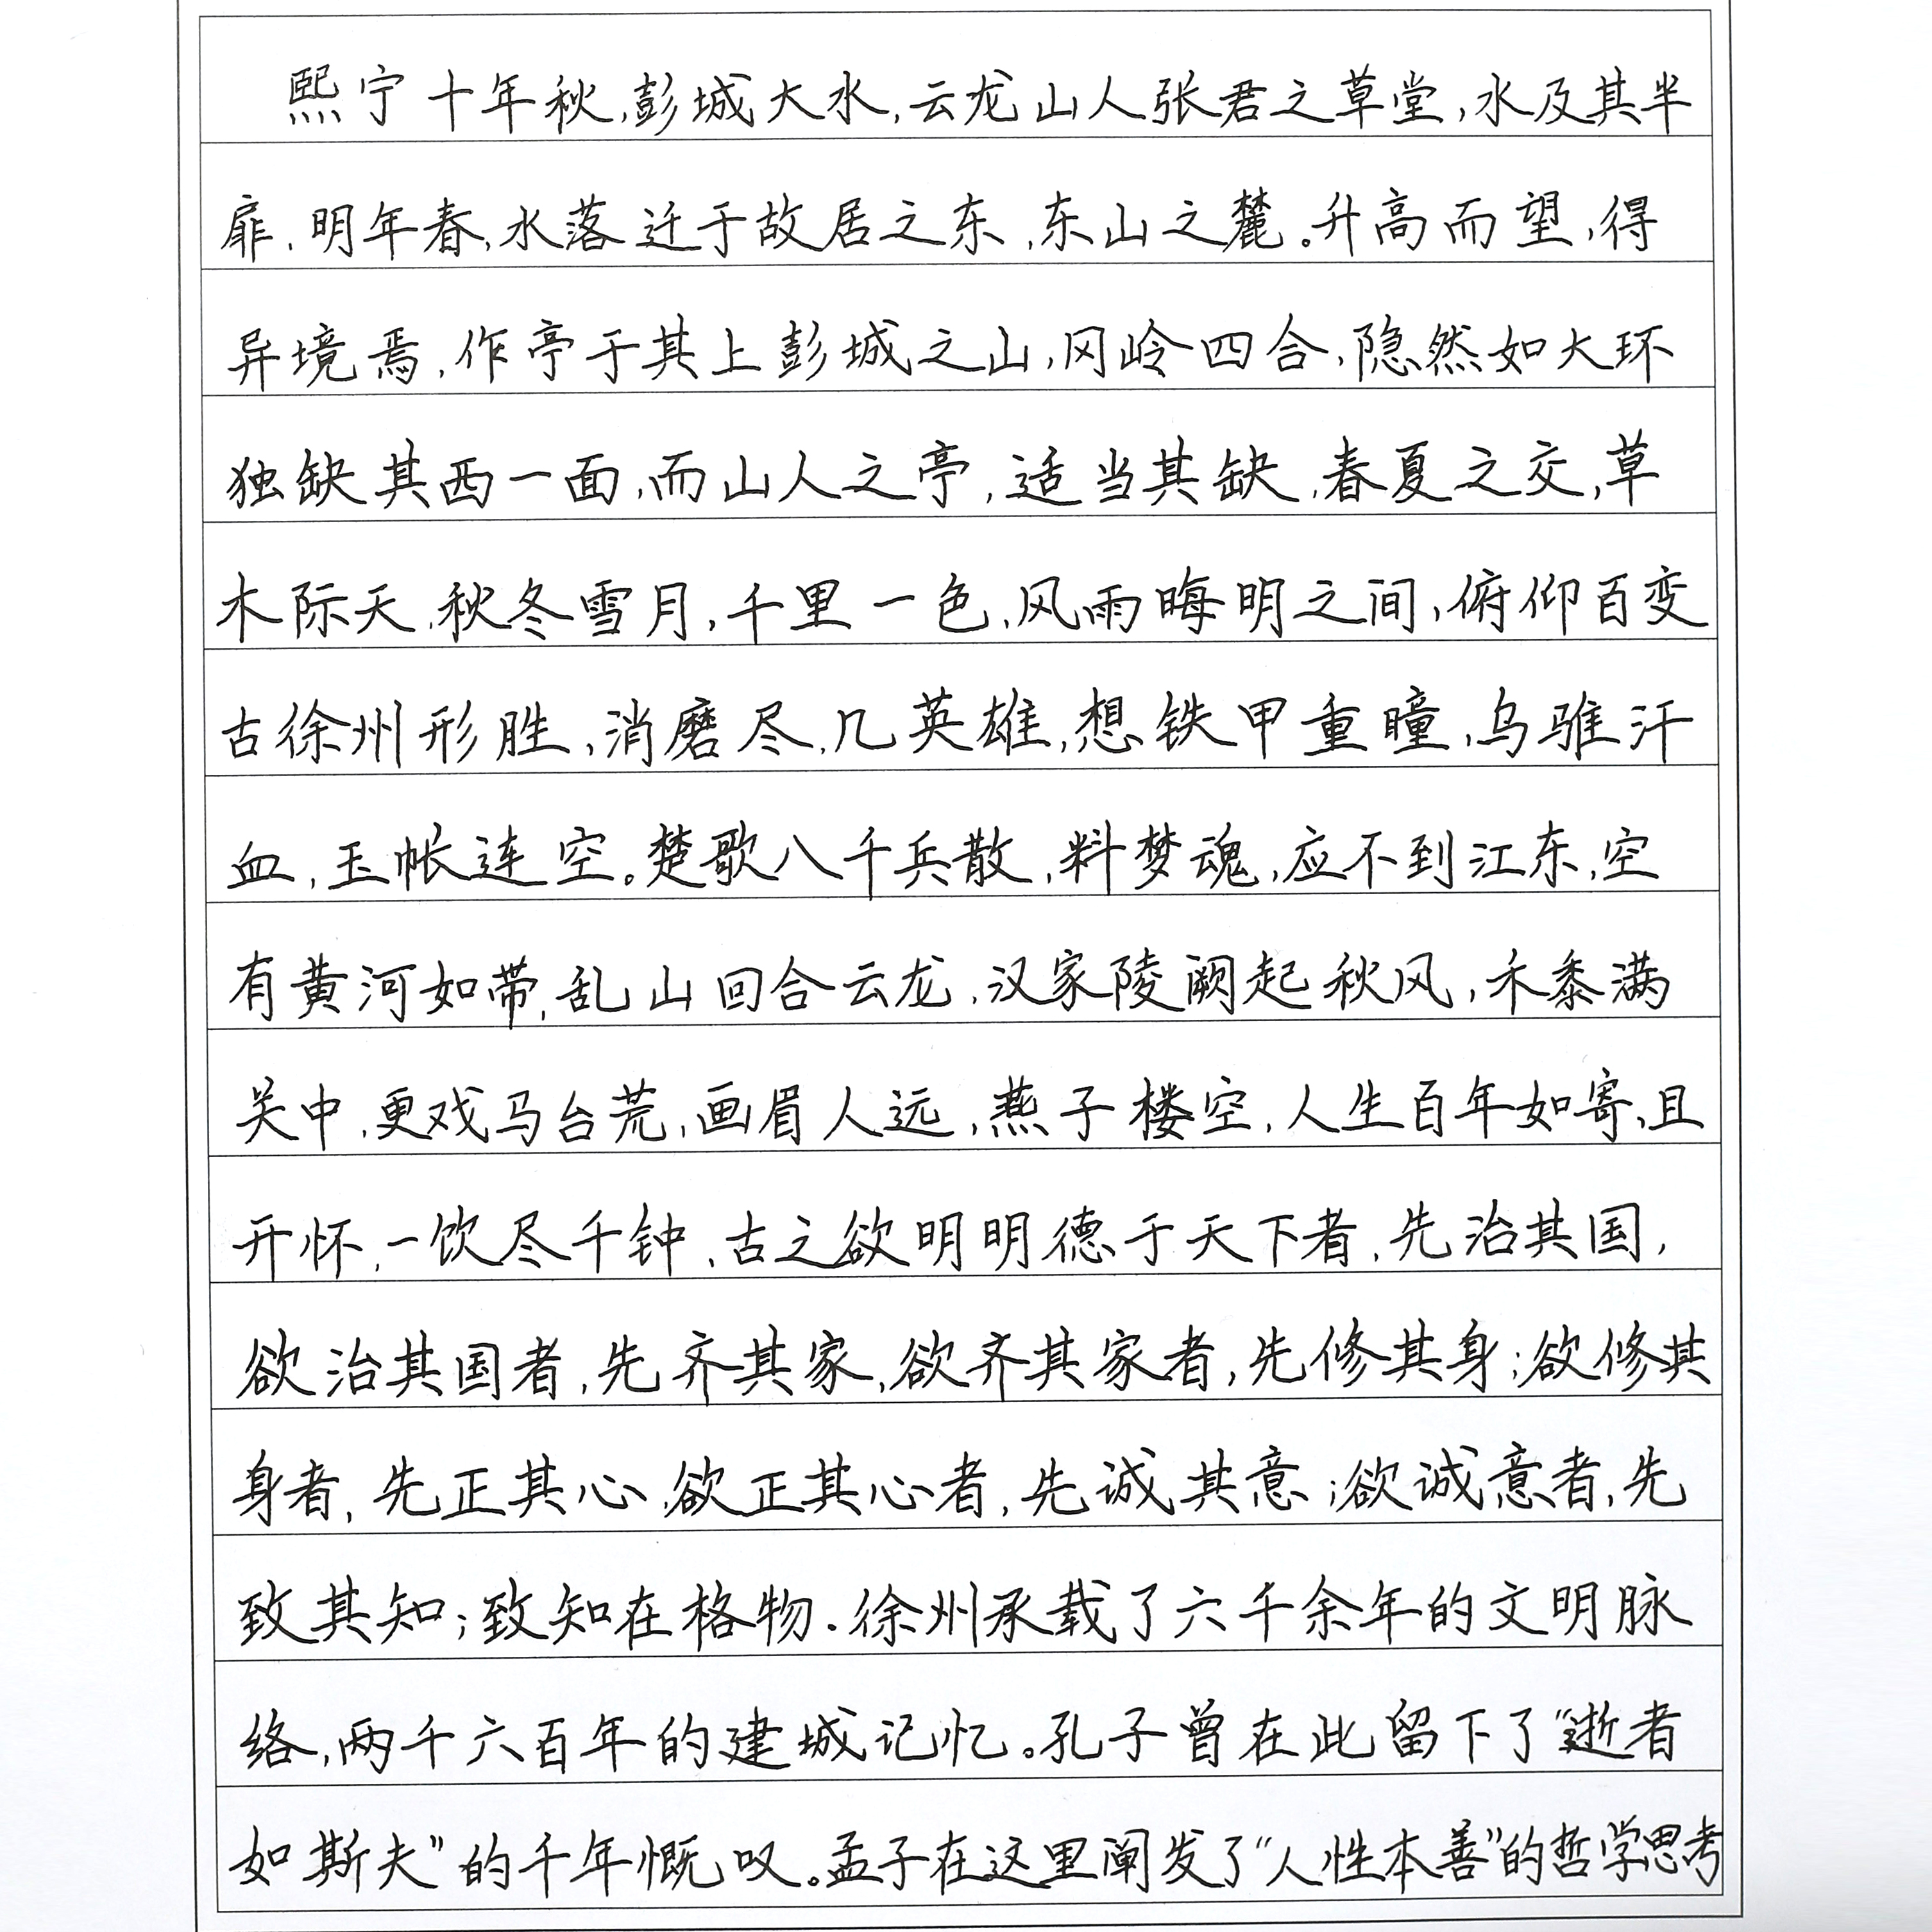 熙宁十年秋,彭城大水,云龙山人张君之草堂,水及其半
扉,明年春,水落迁于故居之东,东山之麓。升高而望,得
异境焉,作亭于其上彭城之山,冈岭四合,隐然如大环
独缺其西一面,而山人之亭,适当其缺,春夏之交,草
木际天,秋冬雪月,千里一色,风雨晦明之间,俯仰百变
古徐州形胜,消磨尽,几英雄,想铁甲重瞳,乌骓汗
血,玉帐连空。楚歌八千兵散,料梦魂,应不到江东,空
有黄河如带,乱山回合云龙,汉家陵阙起秋风,禾黍满
关中,更戏马台荒,画眉人远,燕子楼空,人生百年如寄,且
开怀,一饮尽千钟,古之欲明明德于天下者,先治其国,
欲治其国者,先齐其家,欲齐其家者,先修其身;欲修其
身者,先正其心,欲正其心者,先诚其意;欲诚意者,先
致其知;致知在格物.徐州承载了六千余年的文明脉
络,两千六百年的建城记忆。孔子曾在此留下了“逝者
如斯夫”的千年慨叹。孟子在这里阐发了“人性本善”的哲学思考